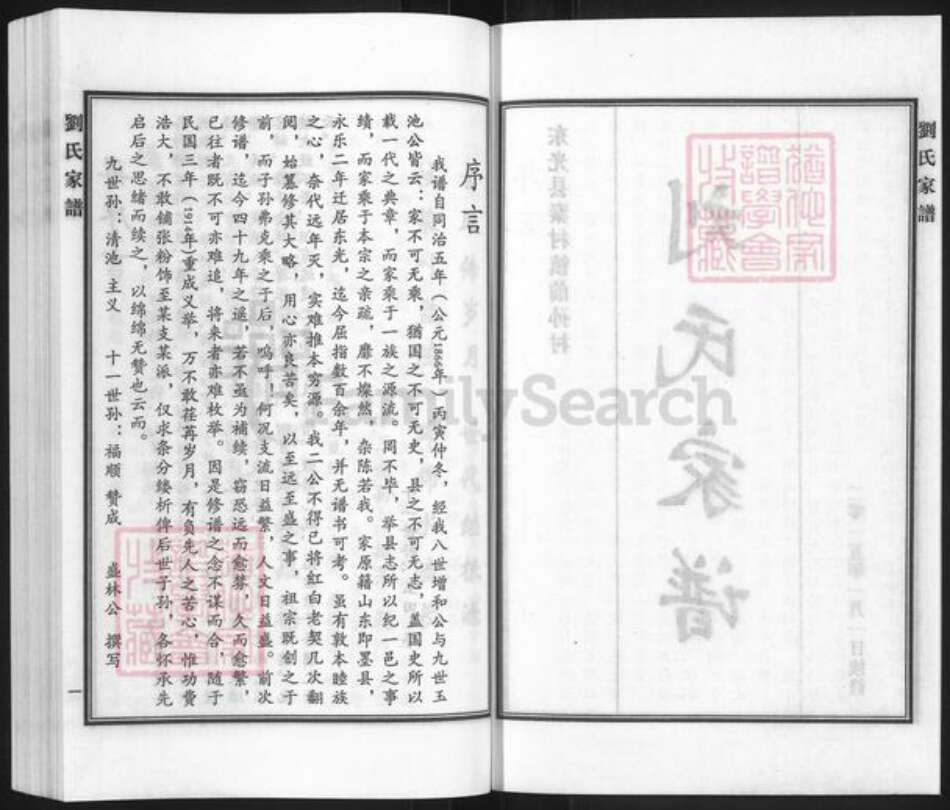 劉氏家譜
序言
我谱自同治五年（公元1866年）丙寅仲冬，经我八世增和公与九世玉
池公皆云：家不可无乘，猶国之不可无史，县之不可无志，盖国史所以
载一代之典章，而家乘于一族之源流。罔不毕，举县志所以纪一邑之事
绩，而家乘于本宗之亲疏，靡不燦然，杂陈若我。家原籍山东即墨县，
永乐二年迁居东光，迄今屈指数百余年，并无谱书可考。虽有敦本睦族
之心，奈代远年灭，实难推本穷源。我二公不得已将红白老契几次翻
阅，始纂修其大略，用心亦良苦矣，以至远至盛之事，祖宗既创之于
前，而子孙弗克乘之于后，呜呼！何况支流日益繁，人文日益盛。前次
修谱，迄今四十九年之遥，若不亟为补续，窃恐远而愈棼，久而愈繁，
已往者既不可亦难追，将来者亦难枚举。因是修谱之念不谋而合，随于
民国三年（1914年）重成义举，万不敢荏苒岁月，有负先人之苦心，惟功费
浩大，不敢铺张粉饰至某支某派，仅求条分缕析俾后世子孙，各怀承先
启后之思绪而续之，以绵绵无赞也云而。
九世孙：清池 主义 十一世孙：福顺 赞成 盛林公 撰写
劉氏家譜
一
刘氏家谱
东光县秦村镇前孙村
FamilySearch